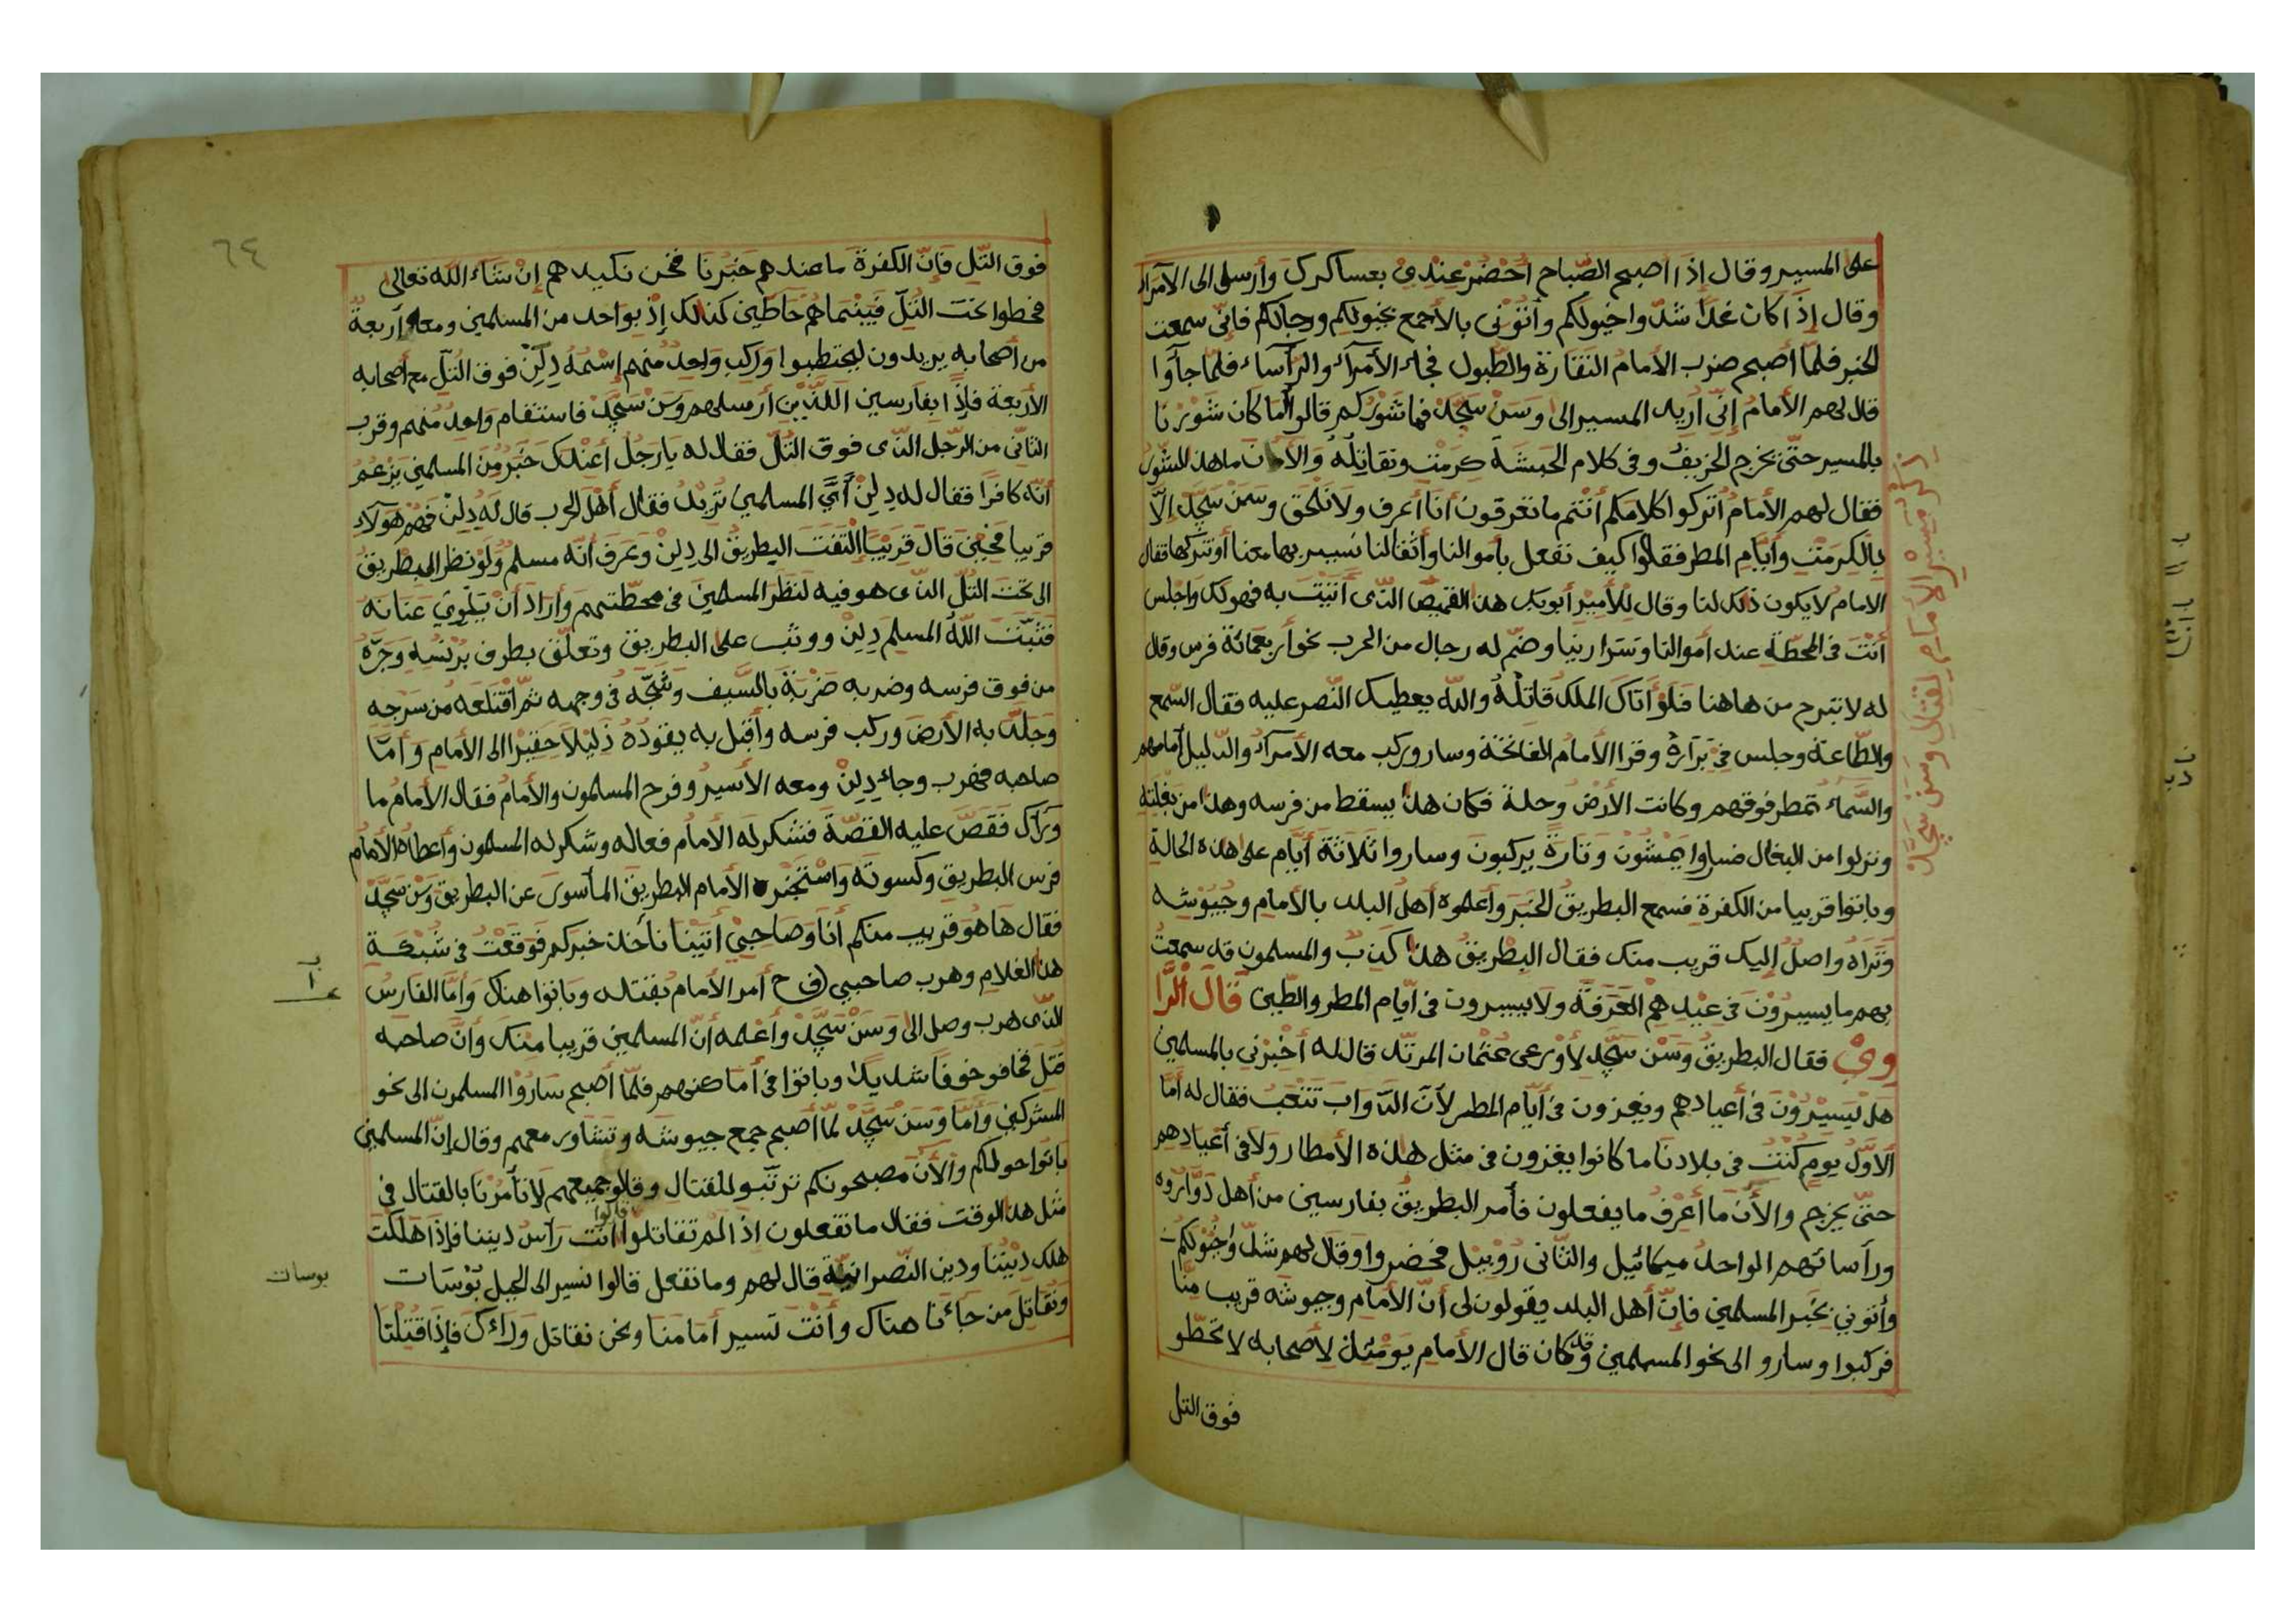 على المسير وقال إذا اصبح الصّباح احْضُرْ عِنْدِيْ بعساكرك وأرسل الى الأمراء
وقال إذَا كان غدًا شدّوا خيولكم وأتوْنى بالأجمع بخيولكم ورجالكم فإنّى سمعت
الخبر فلمّا أصبح ضرب الأمامُ النّقارة والطّبول فجاء الأمرآء والرّأساء فلمّا جاؤا
قال لهم الأمامُ إنّى أريد المسير الى وَسَنْ سَجَّدْ فما شَوْركم قالوا أما كان شَوْرنا
بالمسير حتّى يخرج الخريفُ وفى كلام الحبشَة كِرَمْت ونقاتِلُه وَالأن ما هذا للشّور
فقال لهم الأمامُ أتركوا كلامكم أنتم ما تعرفون أنا أعرف ولا نلحق وسَنْ سَجَّدْ إلّا
بِالكِرَمْت وأيّام المطر فقالوا كيف نفعل بأموالنا وأثقالنا نسير بها معنا أو نتركها فقال
الامام لا يكون ذلك لنا وقال للأمير أبو بكر هذا القميص الذّى أتيْتَ به فهو لك واجلس
أنتَ فى المحطّة عند أموالنا وسَرارينا وضمّ له رجال من الحرب نحو أربعمائة فرس وقال
له لا تبرح من هاهنا فلَوْ أتاك الملك قاتلْهُ والله يعطيك النّصر عليه فقال السّمع
والطّاعة وجلس فى بَرارهْ وقرا الأمامُ الفاتحة وسار وركب معه الأمرآء والدّليل أمامهم
والسّماء تمطر فوقهم وكانت الأرضُ وحلة فكان هذا يسقط من فرسه وهذا من بغلته
ونزلوا من البغال فساروا يَمْشُوْن وتارةً يركبون وساروا ثلاثة أيّام على هذه الحالة
وباتوا قريبا من الكفرة فسمع البطريقُ الخبَر وأعلموه أهلُ البلد بالأمام وجُيُوْشه
وَتَرَاهُ واصلٌ إليك قريب منك فقال البِطْريقُ هذا كذب والمسلمون قد سمعتُ
بهم ما يسيرُوْنَ فى عِيْدِهِم العَرَفَة ولا يسيرون فى أيّام المطر والطّين قال الرّا
وِيْ فقال البطريقُ وَسَنْ سَجَّد لأورعى عثمان المرتدّ قال له أخْبِرْني بالمسلمين
هَل يَسِيْرُوْنَ فى أعيادهم ويغزون فى أيّام المطر لأنّ الدّوابّ تَتْعَبُ فقال له أمّا
الأوّلُ يومٍ كُنْتُ فى بلادنا ما كانوا يغزون فى مثل هذه الأمطار ولا فى أعْيادهم
حتّى يخرج والأن ما أعْرِفُ ما يفعلون فأمر البطريقُ بفارسين من أهل دَوَّارُوه
ورأسائهم الواحدُ ميكائيل والثّانى رُوْبيْل فحضروا وقال لهم شدّوا خُيُوْلكم
وأتوني بِخَبَر المسلمين فإنّ أهل البلد يقولون لى أنّ الأمام وجيوشه قريب منّا
فركبوا وسارو الى نحو المسلمين وقد كان قال الأمام يَوْمئذٍ لأصحابه لا تحطّو
فوق التل
ذكر مسير الأمام لقتال وسن سَجَّدْ
٦٤
فوق التّل فإنّ الكفرة ما عندهم خبرنا فنحن نكيدهم إنْ شاء الله تعالى
فحطوا تحت التّلّ فبينما هُمْ حَاطّين كذلك إذ بواحد من المسلمين ومعه أربعةُ
من أصحابه يريدون ليحتطبوا وَركب واحدٌ منهم إسْمُهُ دِلِنْ فوق التّلّ مع أصحابه
الأربعة فإذا بفارسين اللّذين أرسلهم وَسَنْ سَجَّدْ فاستقام واحدٌ منهم وقرب
الثّاني من الرّجل الذّى فوق التّلّ فقال له يا رَجُلُ أعِنْدك خَبَر مِنَ المسلمين يَزْعمُ
أنّه كافرا فقال له دِلِنْ أيّ المسلمين تريدُ فقال أهْلَ الحرب قال لَهُ دِلِنْ فَهُمْ هَولَاء
قريبا فحِيْنَ قال قَرِيْبًا إلْتَفَتَ البطريقُ الى دِلِنْ وعَرفَ أنّه مسلم وَلَوْ نظر البطريق
الى تحت التّلّ الذّى هو فيه لنظر المسلمين فى محطّتهم وأراد أنْ يَلْوِيَ عَنَانه
فَثَبَّتَ اللّهُ المسلم دِلِنْ ووثب على البطريق وتعلّق بطرف بُرْنُسِه وَجَرَّهُ
من فوق فرسه وضربه ضَرْبةً بالسّيف وشَجَّه فى وجهه ثمّ اقْتلعه من سرْجِه
وَجلَد به الأرض وركب فرسه وأقبل به يقودُهُ ذَلِيْلًا حَقِيْرا الى الأمام وأمّا
صاحبه فهرب وجاء دِلِنْ ومعه الأسيرُ وفرح المسلمون والأمامُ فقال الأمامُ ما
وَرَآك فقصّ عليه القصّة فشكر له الأمام فعاله وشكر له المسلمون وأعطاه الأمامُ
فرس البطريق وكسوته واسْتَخْبَره الأمام البطريقَ المأسورَ عن البطريق وَسَنْ سَجَّدْ
فقال هَا هُوَ قريب منكم أنا وَصَاحِبِيْ أتيْنا نأخذ خبركم فوقعْتُ فى شُبْكَةِ
هذا الغلام وهرب صاحبي (ف ح أمر الأمام بقتله وباتوا هناك وأمّا الفارسُ
الذّى هرب وصل الى وَسَنْ سَجَّدْ وأعْلمه أنّ المسلمين قريبا منك وأنّ صاحبه
قُتِلَ فخافو خوفًا شديدًا وباتوا فى أماكنهم فلمّا أصبح سَارُوْا المسلمون الى نحو
المشركين وَأمَّا وَسَنْ سَجَّدْ لمّا أصبح جمع جيوشه وتشاور معهم وقال إنّ المسلمين
باتوا حولكم والأن مصبحونكم ترتّبو للقتال وقالو جميعهم لا تأمرْنا بالقتال فى
مثل هذا الوقت فقال ما تفعلون اذا لَمْ تقاتلوا قالوا أنت رأس ديننا فإذا هَلكت
هلك دِيْنُنا ودين النّصرانيّة قال لهم وما نفعل قالوا نسير الى الجبل بُوْسَات
ونقَاتلَ من جَاءنا هناك وأنْتَ تسير أمَامَنا ونحن نقاتل وَراءك فإذا قُتِلْنا
بوسات